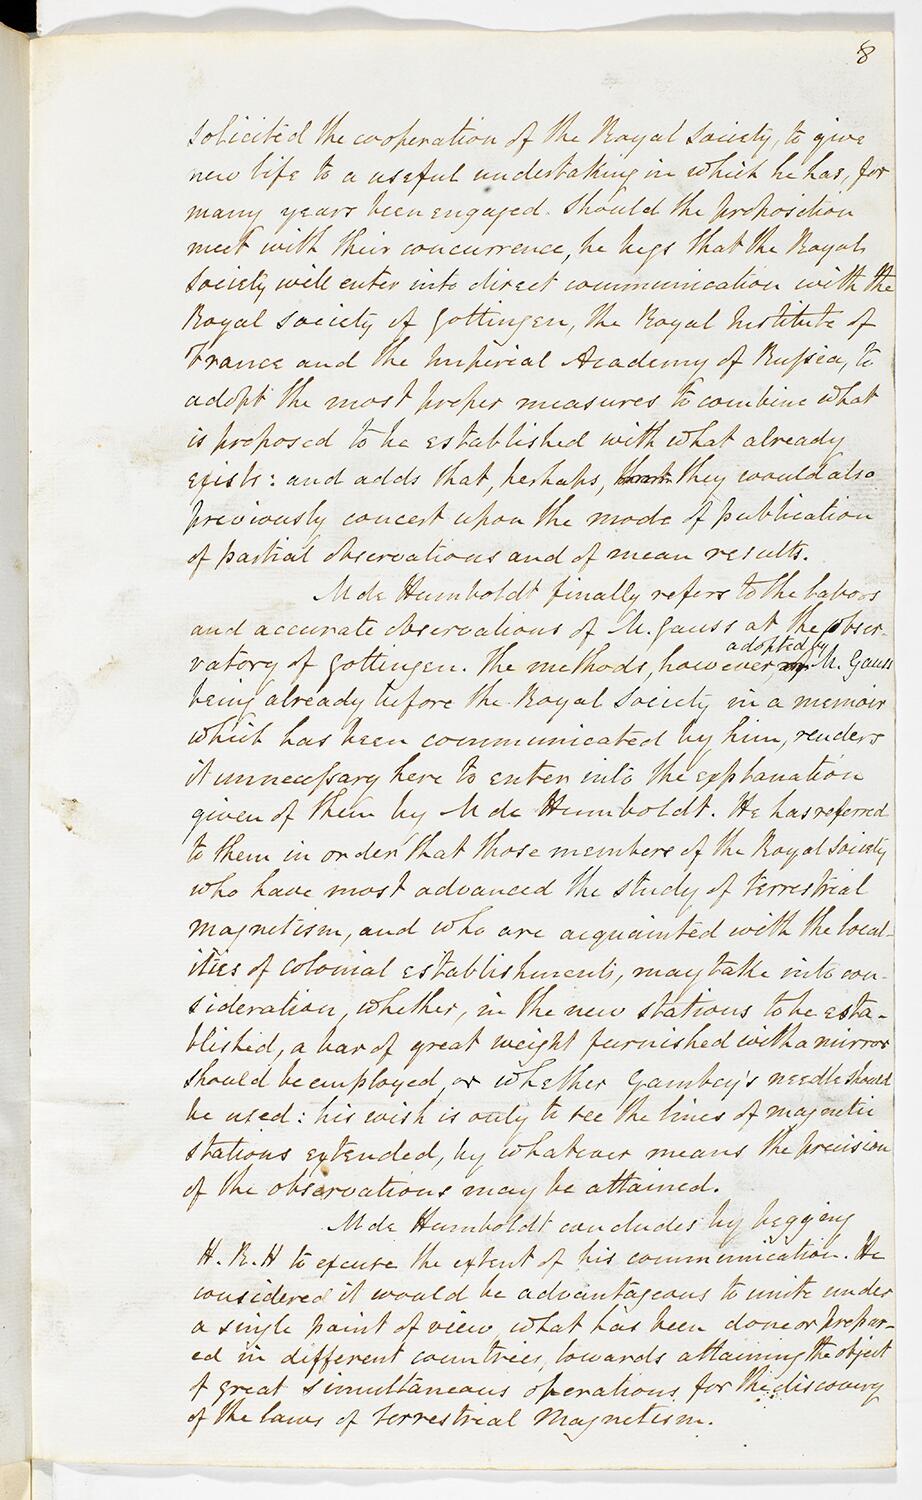 8
solicited the cooperation of the Royal Society, to give
new life to a useful undertaking in which he has, for
many years been engaged. Should the proposition
meet with their concurrence, he begs that the Royal
Society will enter into direct communication with the
Royal Society of Gottingen, the Royal Institute of
France and the Imperial Academy of Russia, to
adopt the most proper measures to combine what
is proposed to be established with what already
exists: and adds that, perhaps, they would also
previously concert upon the mode of publication
of partial observations and of mean results.
M de Humboldt finally refers to the labors
and accurate observations of M. Gauss at the obser-
vatory of Gottingen. The methods, however, adopted by M. Gauss
being already before the Royal Society in a memoir
which has been communicated by him, renders
it unnecessary here to enter into the explanation
given of them by M de Humboldt. He has referred
to them in order that those members of the Royal Society
who have most advanced the study of terrestrial
magnetism, and who are acquainted with the local-
ities of colonial establishments, may take into con-
sideration, whether, in the new stations to be esta-
blished, a bar of great weight furnished with a mirror
should be employed, or whether Gambey's needle should
be used: his wish is only to see the lines of magnetic
stations extended, by whatever means the precision
of the observations may be attained.
M de Humboldt concludes by begging
H. R. H to excuse the extent of his communication. He
considered it would be advantageous to unite under
a single point of view what has been done or prepar-
ed in different countries, towards attaining the object
of great simultaneous operations for the discovery
of the laws of terrestrial Magnetism.